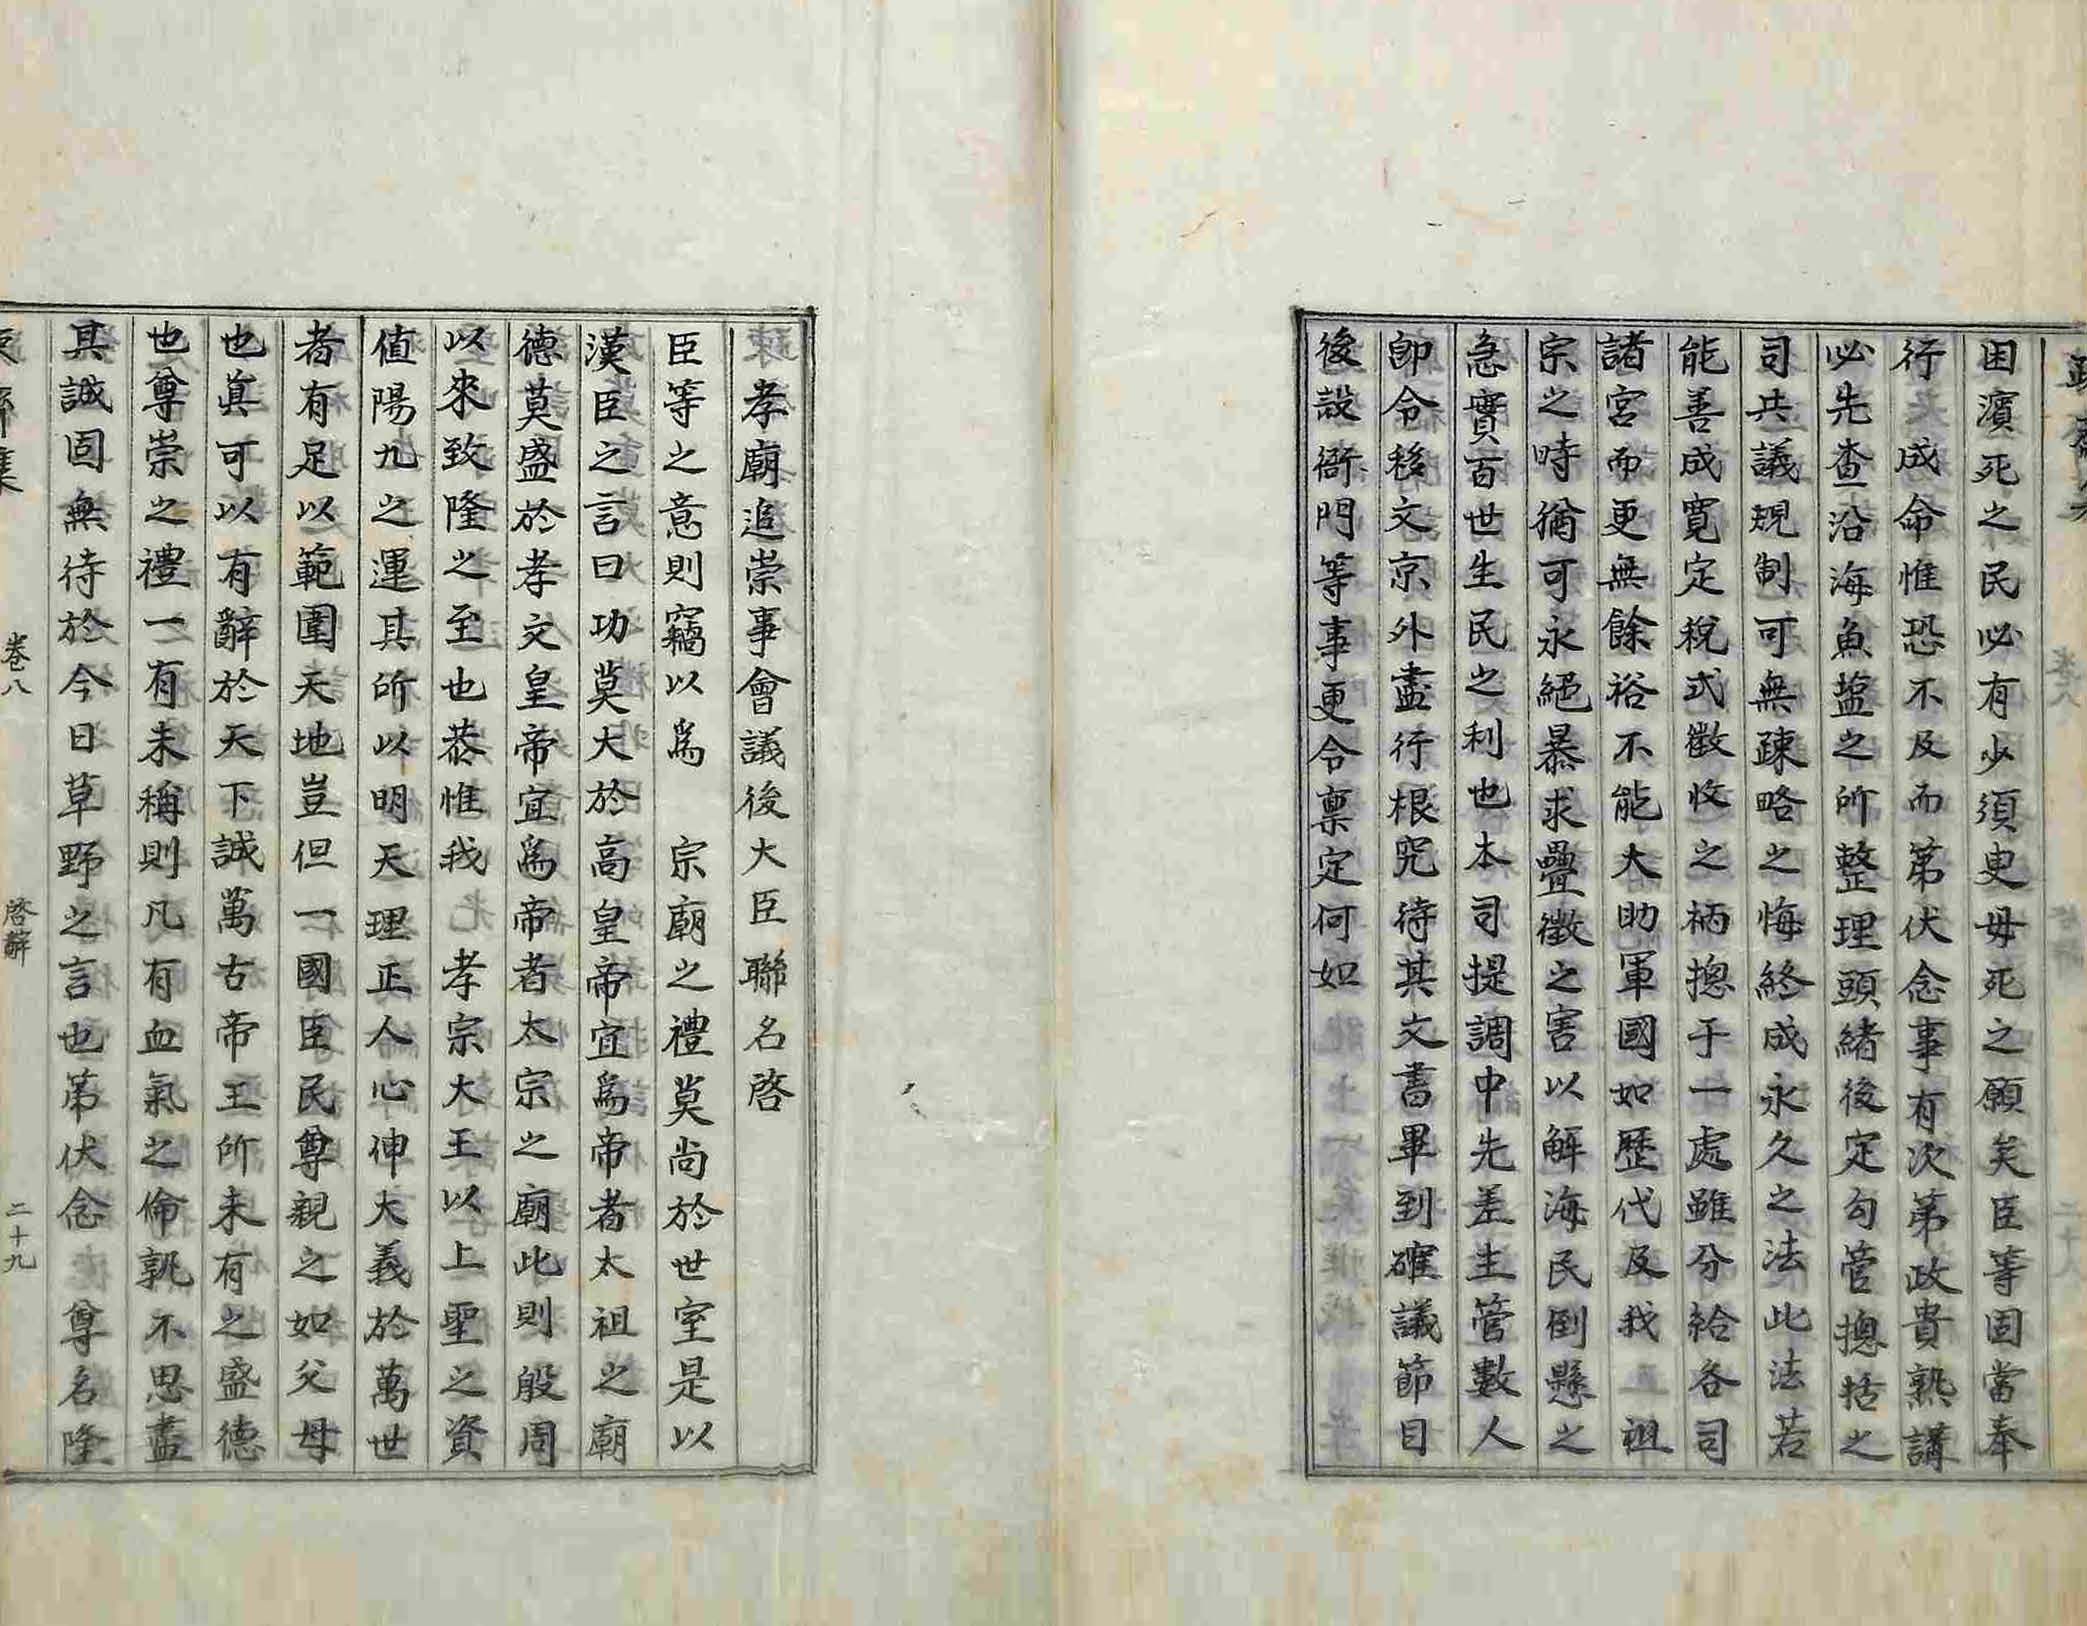 困濱死之民必有少須臾毋死之願矣臣等固當奉
行　成命惟恐不及而第伏念事有次第政貴熟講
必先查沿海魚塩之所整理頭緒後定勾管摠括之
司共議規制可無疎略之悔終成永久之法此法若
能善成寬定稅式徵收之柄摠于一處雖分給各司
諸宮而更無餘裕不能大助軍國如歷代及我　祖
宗之時猶可永絕暴求疊徵之害以解海民倒懸之
急實百世生民之利也本司提調中先差主管數人
卽令移文京外盡行根究待其文書畢到確議節目
後設衙門等事更令稟定何如
孝廟追崇事會議後大臣聯名啓
臣等之意則竊以爲　宗廟之禮莫尚於世室是以
漢臣之言曰功莫大於高皇帝宜爲帝者太祖之廟
德莫盛於孝文皇帝宜爲帝者太宗之廟此則殷周
以來致隆之至也恭惟我　孝宗大王以上聖之資
値陽九之運其所以明天理正人心伸大義於萬世
者有足以範圍天地豈但一國臣民尊親之如父母
也眞可以有辭於天下誠萬古帝王所未有之盛德
也尊崇之禮一有未稱則凡有血氣之倫孰不思盡
其誠固無待於今日草野之言也第伏念　尊名隆
卷八　啓辭　二十九